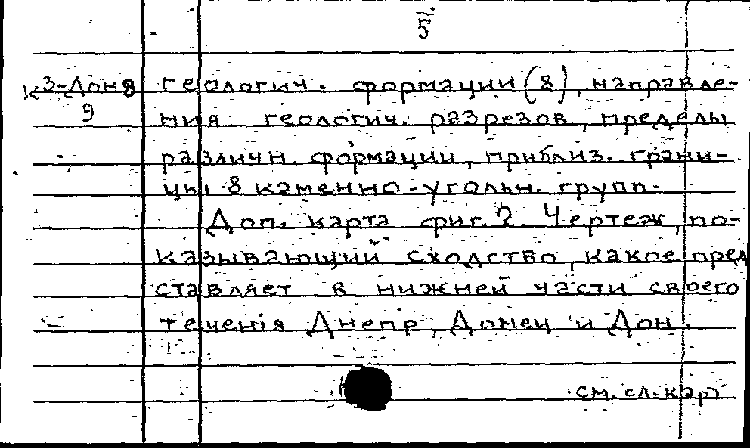 5
К3-Дон8 геологич. формации (8), направле-
9 ния геологич. разрезов, пределы
различн. формации, приблиз. грани-
цы 8 каменно-угольн. групп.
Доп. карта фиг. 2. Чертеж, по-
казывающий сходство, какое пред
ставляет в нижней части своего
теченія Днепр, Донец и Дон.
см. сл. кар